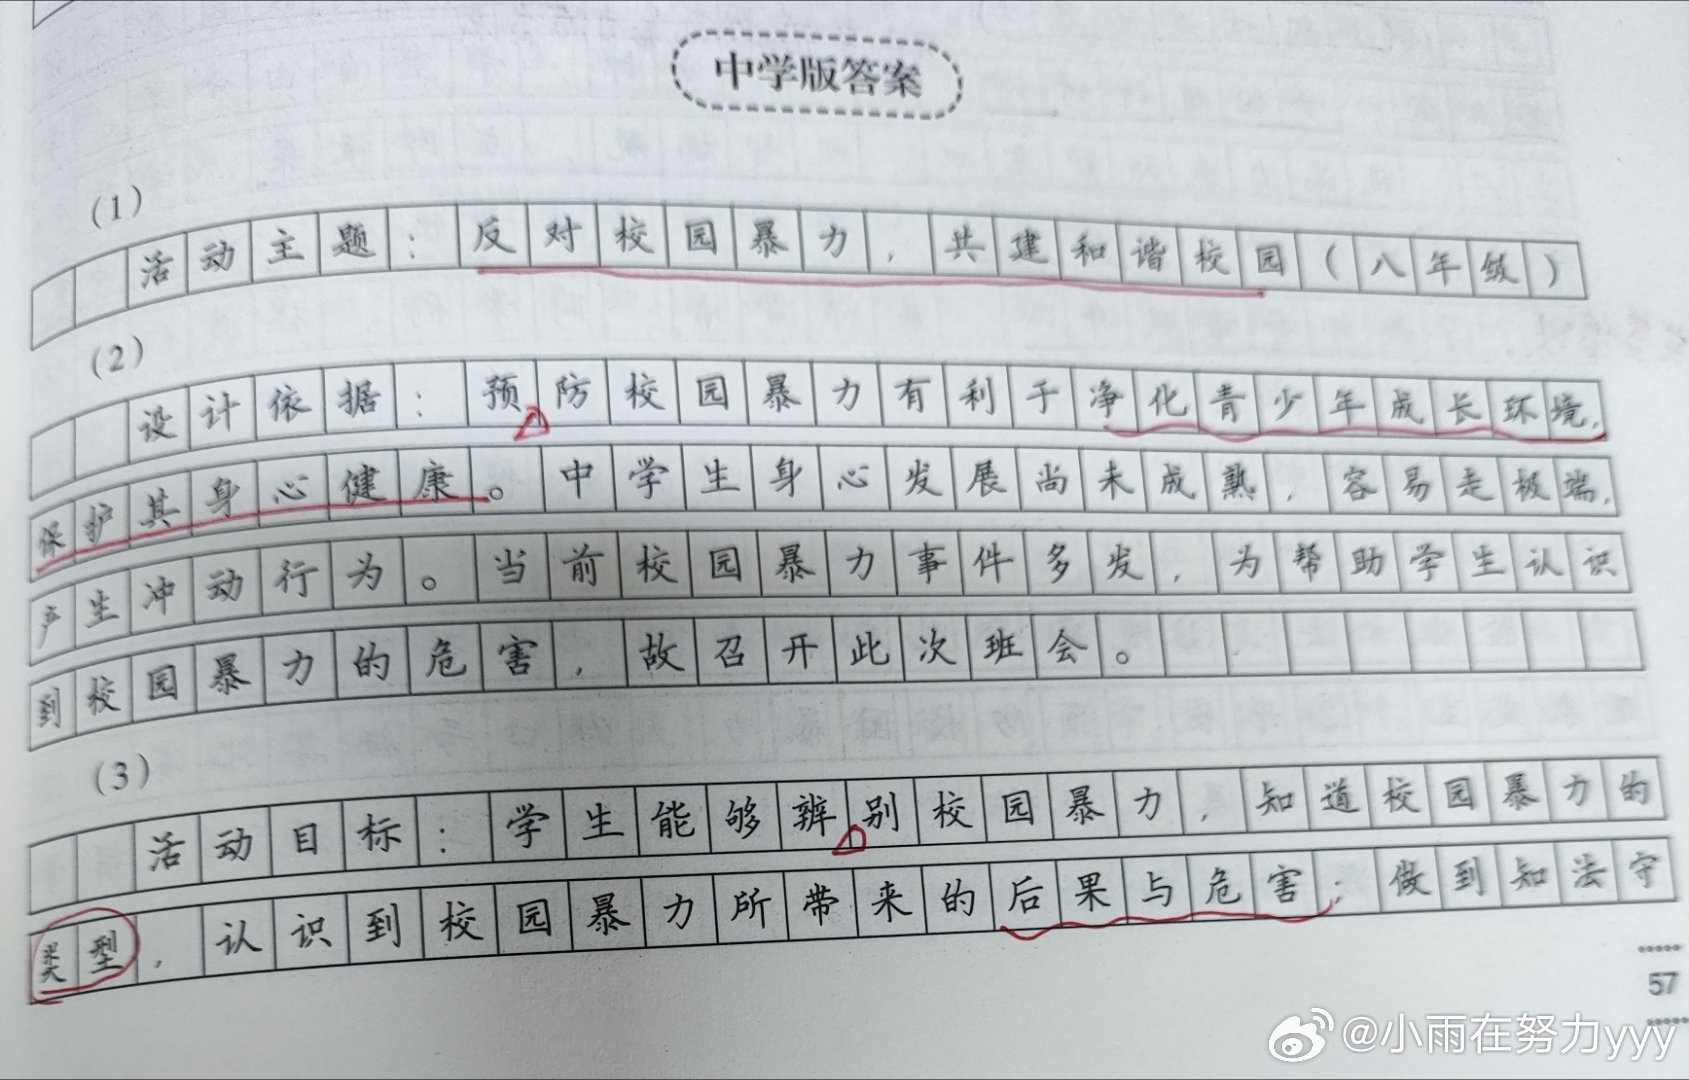 中学版答案
（1）
活动主题：反对校园暴力，共建和谐校园（八年级）
（2）
设计依据：预防校园暴力有利于净化青少年成长环境，
保护其身心健康。中学生身心发展尚未成熟，容易走极端，
产生冲动行为。当前校园暴力事件多发，为帮助学生认识
到校园暴力的危害，故召开此次班会。
（3）
活动目标：学生能够辨别校园暴力，知道校园暴力的
类型，认识到校园暴力所带来的后果与危害；做到知法守
57
@小雨在努力yyy